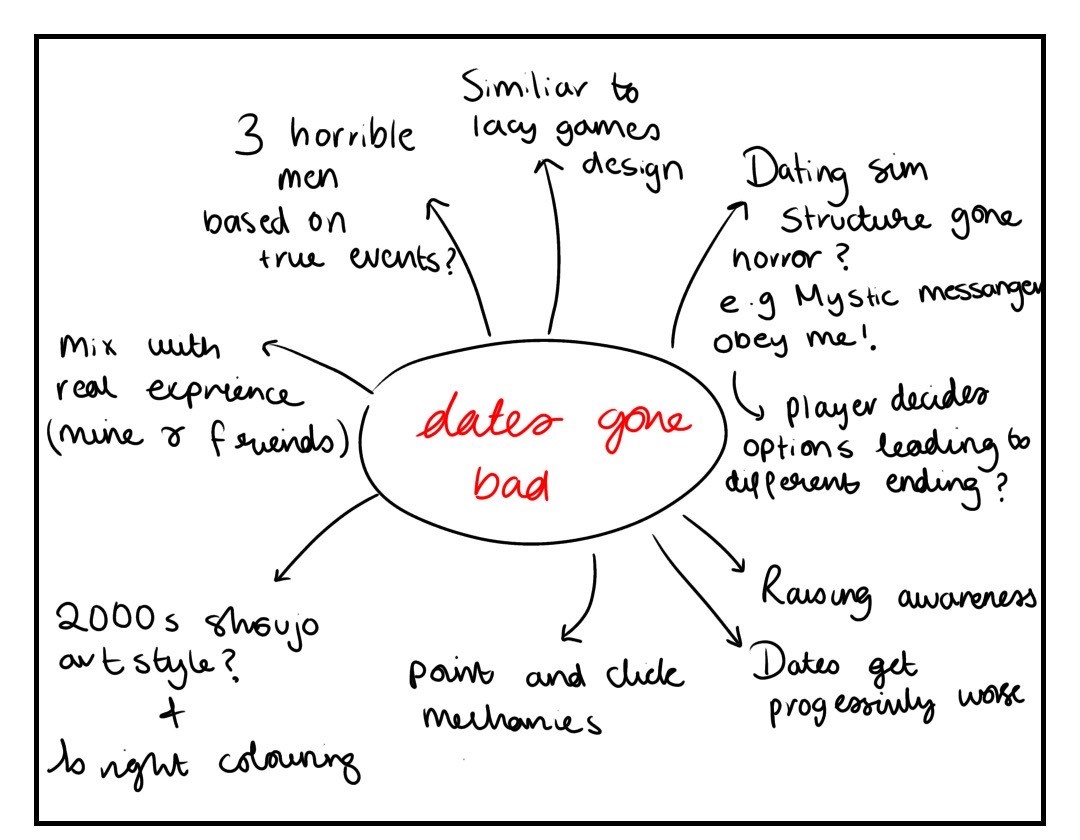 Similiar to
lacy games
design
3 horrible
men
based on
true events?
Dating sim
structure gone
horror?
e.g Mystic messanger
obey me!.
player decides
options leading to
different ending?
Mix with
real exprience
(mine & friends)
dates gone
bad
Raising awareness
Dates get
progessivly worse
2000s shoujo
art style?
+
bright colouring
point and click
mechanics